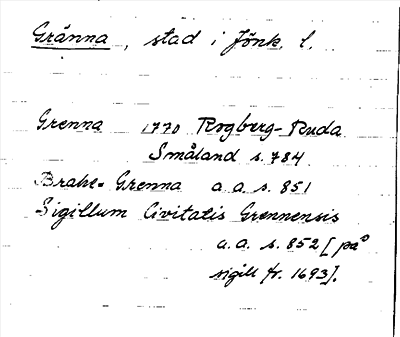 Gränna, stad i Jönk. l.
Grenna 1770 Rogberg-Ruda
Småland s. 784
Brahe-Grenna a.a. s. 851
Sigillum Civitatis Grennensis
a.a. s. 852 [på
sigill fr. 1693].